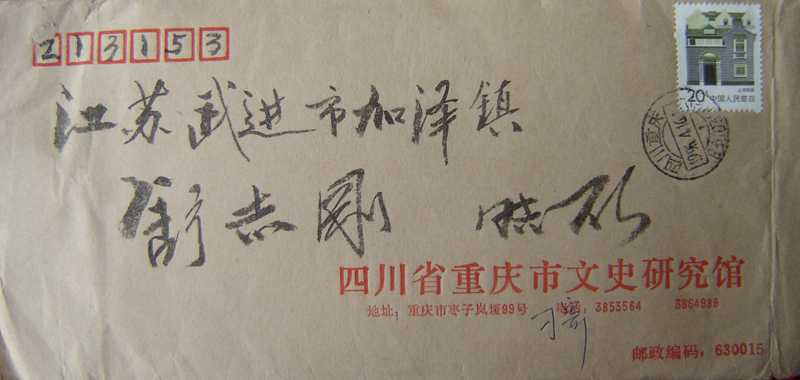 213153
20分 中国人民邮政
上海民居
四川重庆
1996.4.16
江苏武进市加泽镇
舒志刚
四川省重庆市文史研究馆
地址：重庆市枣子岚垭99号 电话：3853564 3864989
刁寄
邮政编码：630015